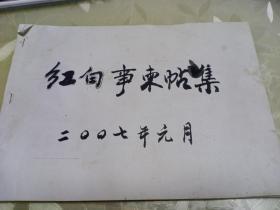 红白事柬帖集
二〇〇七年元月